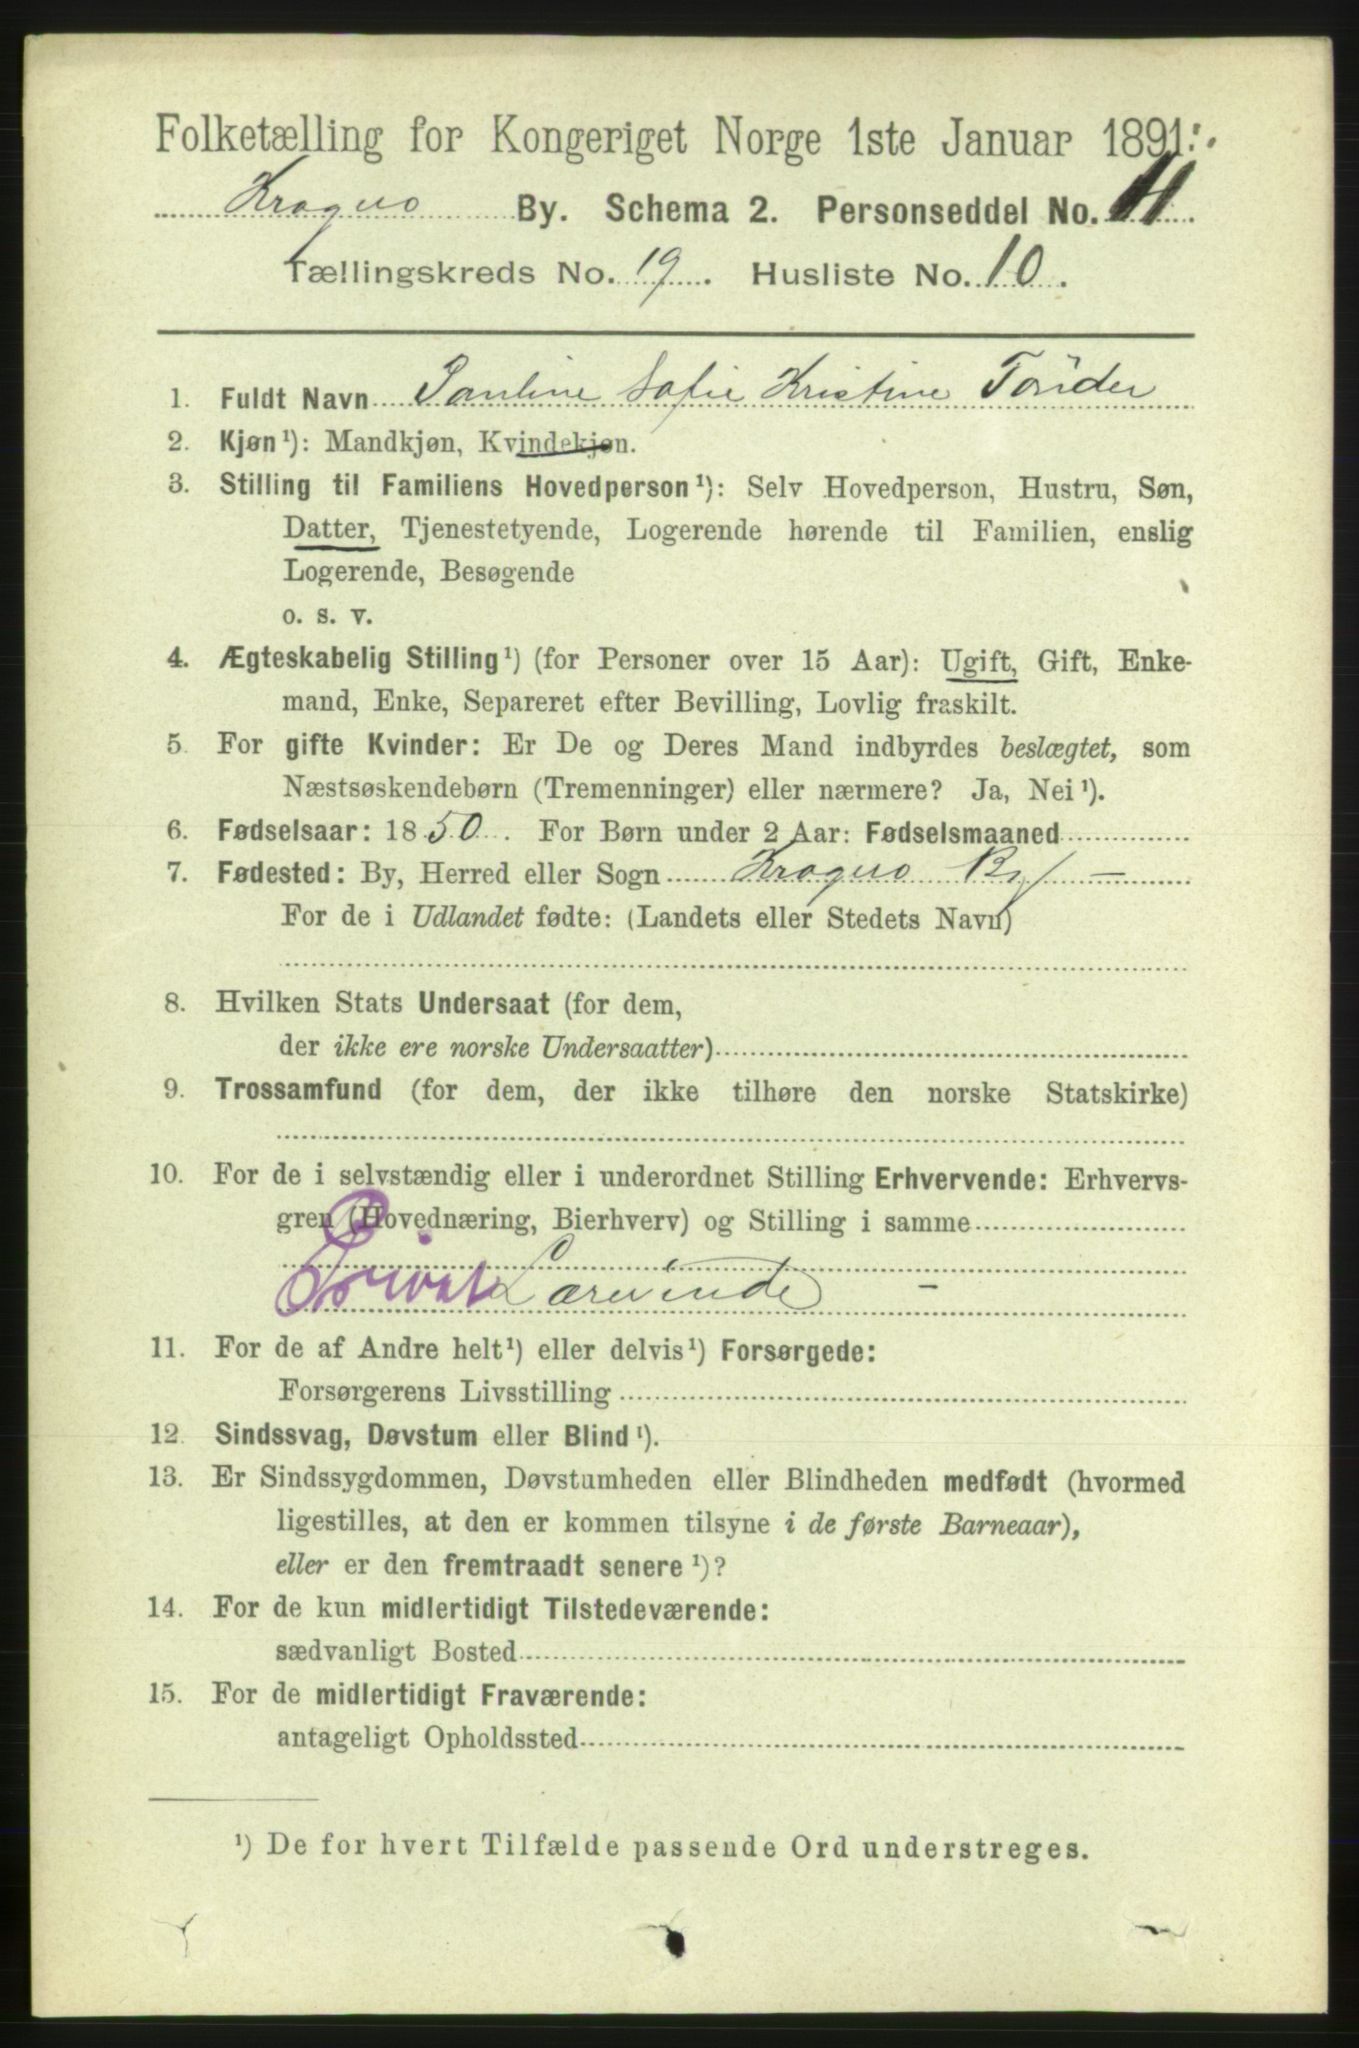 Folketælling for Kongeriget Norge 1ste Januar 1891.
Kragerø By. Schema 2. Personseddel No. 
Tællingskreds No. 19. Husliste No. 10.
1. Fuldt Navn Pauline Sofie Kristine Tönder
2. Kjøn¹): Mandkjøn, Kvindekjøn.
3. Stilling til Familiens Hovedperson¹): Selv Hovedperson, Hustru, Søn,
Datter, Tjenestetyende, Logerende hørende til Familien, enslig
Logerende, Besøgende
o. s. v.
4. Ægteskabelig Stilling¹) (for Personer over 15 Aar): Ugift, Gift, Enke-
mand, Enke, Separeret efter Bevilling, Lovlig fraskilt.
5. For gifte Kvinder: Er De og Deres Mand indbyrdes beslægtet, som
Næstsøskendebørn (Tremenninger) eller nærmere? Ja, Nei¹).
6. Fødselsaar: 1850. For Børn under 2 Aar: Fødselsmaaned
7. Fødested: By, Herred eller Sogn Kragerø By —
For de i Udlandet fødte: (Landets eller Stedets Navn)
8. Hvilken Stats Undersaat (for dem,
der ikke ere norske Undersaatter)
9. Trossamfund (for dem, der ikke tilhøre den norske Statskirke)
10. For de i selvstændig eller i underordnet Stilling Erhvervende: Erhvervs-
gren (Hovednæring, Bierhverv) og Stilling i samme
Privat Lærerinde —
11. For de af Andre helt¹) eller delvis¹) Forsørgede:
Forsørgerens Livsstilling
12. Sindssvag, Døvstum eller Blind¹).
13. Er Sindssygdommen, Døvstumheden eller Blindheden medfødt (hvormed
ligestilles, at den er kommen tilsyne i de første Barneaar),
eller er den fremtraadt senere¹)?
14. For de kun midlertidigt Tilstedeværende:
sædvanligt Bosted
15. For de midlertidigt Fraværende:
antageligt Opholdssted
¹) De for hvert Tilfælde passende Ord understreges.